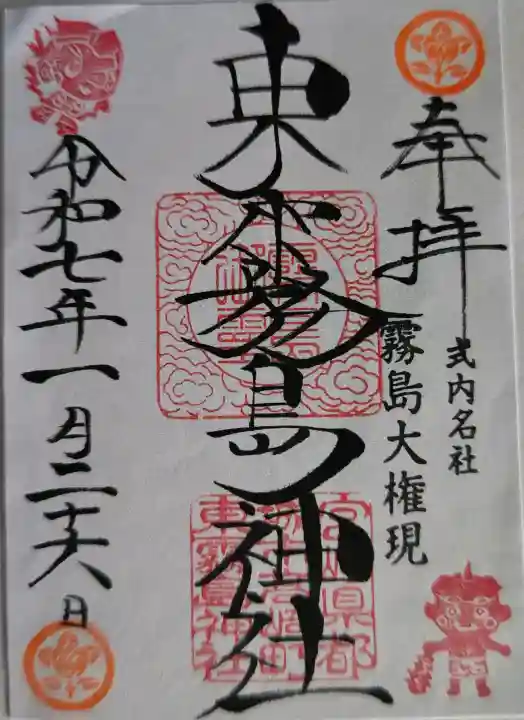 奉拝
式内名社
霧島大権現
東霧島神社
宮崎県都
城市高崎町
東霧島神社
令和七年一月二十六日